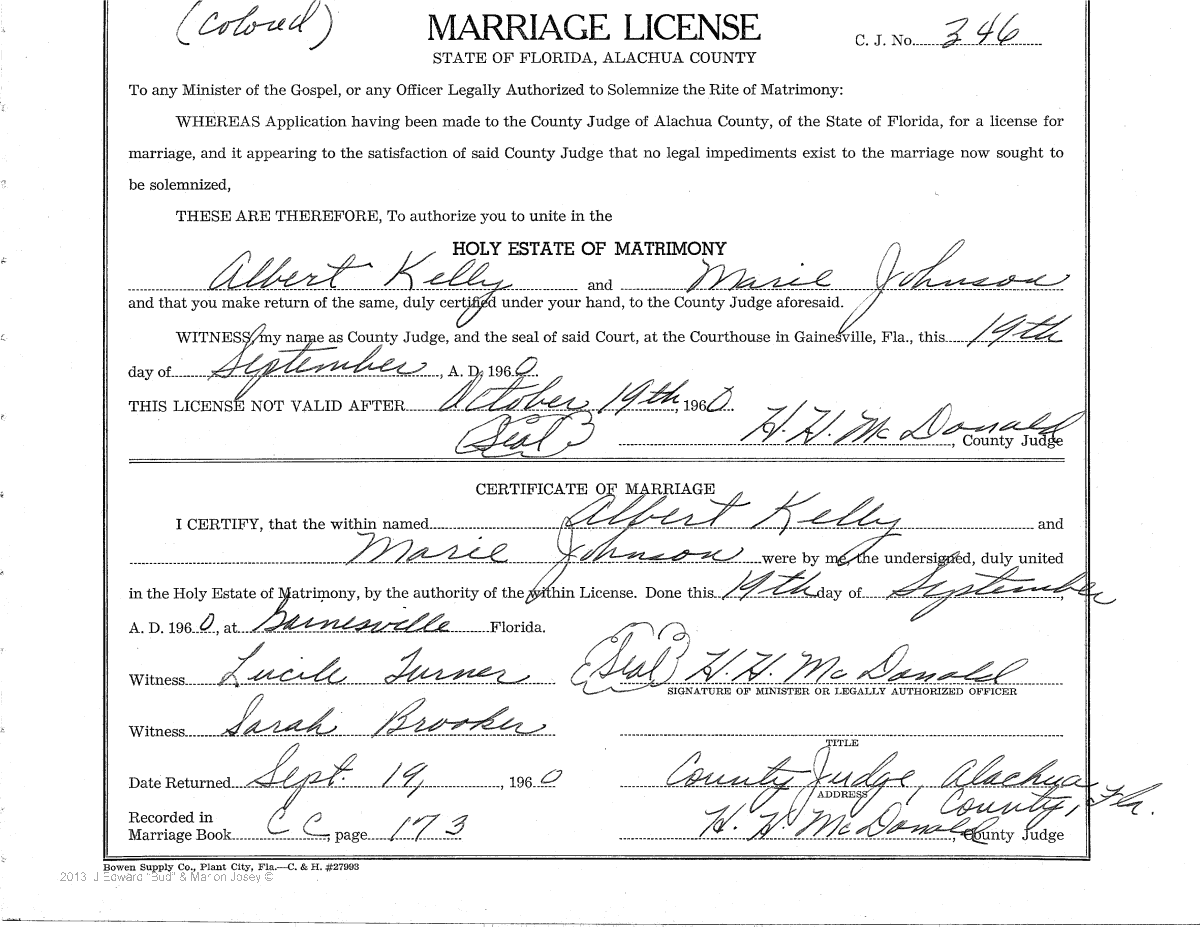 (Colored)
MARRIAGE LICENSE
C. J. No. 346
STATE OF FLORIDA, ALACHUA COUNTY
To any Minister of the Gospel, or any Officer Legally Authorized to Solemnize the Rite of Matrimony:
WHEREAS Application having been made to the County Judge of Alachua County, of the State of Florida, for a license for
marriage, and it appearing to the satisfaction of said County Judge that no legal impediments exist to the marriage now sought to
be solemnized,
THESE ARE THEREFORE, To authorize you to unite in the
HOLY ESTATE OF MATRIMONY
Albert Kelly and Marie Johnson
and that you make return of the same, duly certified under your hand, to the County Judge aforesaid.
WITNESS my name as County Judge, and the seal of said Court, at the Courthouse in Gainesville, Fla., this 19th
day of September, A. D. 1960.
THIS LICENSE NOT VALID AFTER October 19th, 1960.
(Seal) H. H. McDonald, County Judge
CERTIFICATE OF MARRIAGE
I CERTIFY, that the within named Albert Kelly and
Marie Johnson were by me, the undersigned, duly united
in the Holy Estate of Matrimony, by the authority of the within License. Done this 19th day of September,
A. D. 1960, at Gainesville Florida.
Witness Lucile Turner (Seal) H. H. McDonald
SIGNATURE OF MINISTER OR LEGALLY AUTHORIZED OFFICER
Witness Sarah Brooker
TITLE
Date Returned Sept. 19, 1960 County Judge, Alachua
ADDRESS
County, Fla.
Recorded in
Marriage Book CC, page 173 H. H. McDonald, County Judge
Bowen Supply Co., Plant City, Fla.—C. & H. #27993
2013 J Edward "Bud" & Marion Josey ©